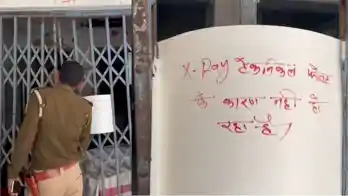 X-Ray टेकनिकल फेलर
के कारण नही हो
रहा है/